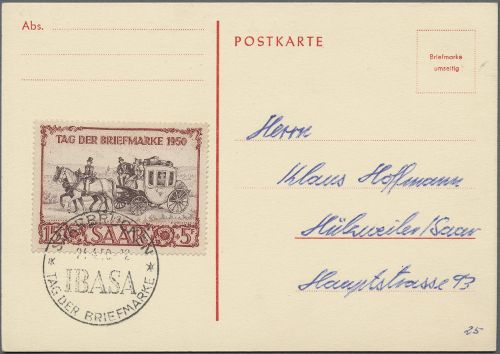 Abs.
POSTKARTE
Briefmarke
umseitig
TAG DER BRIEFMARKE 1950
15 SAAR 5
SAARBRÜCKEN
IBASA
TAG DER BRIEFMARKE
Herrn
Klaus Hoffmann
Hülzweiler/Saar
Hauptstrasse 93
25